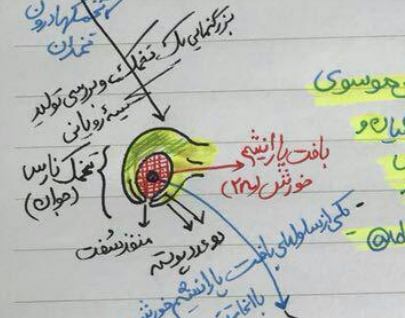 تخمکها درون
تخمدان
بزرگنمایی یک تخمک و بررسی تولید
کیسه رویانی
موسوی
گیاه و
تخمک نارس
(جوان)
بافت پارانشیم
خورش (2n)
منفذ سفت
دو عدد پوسته
- یکی از سلولهای بافت پارانشیم خورش
با انجام